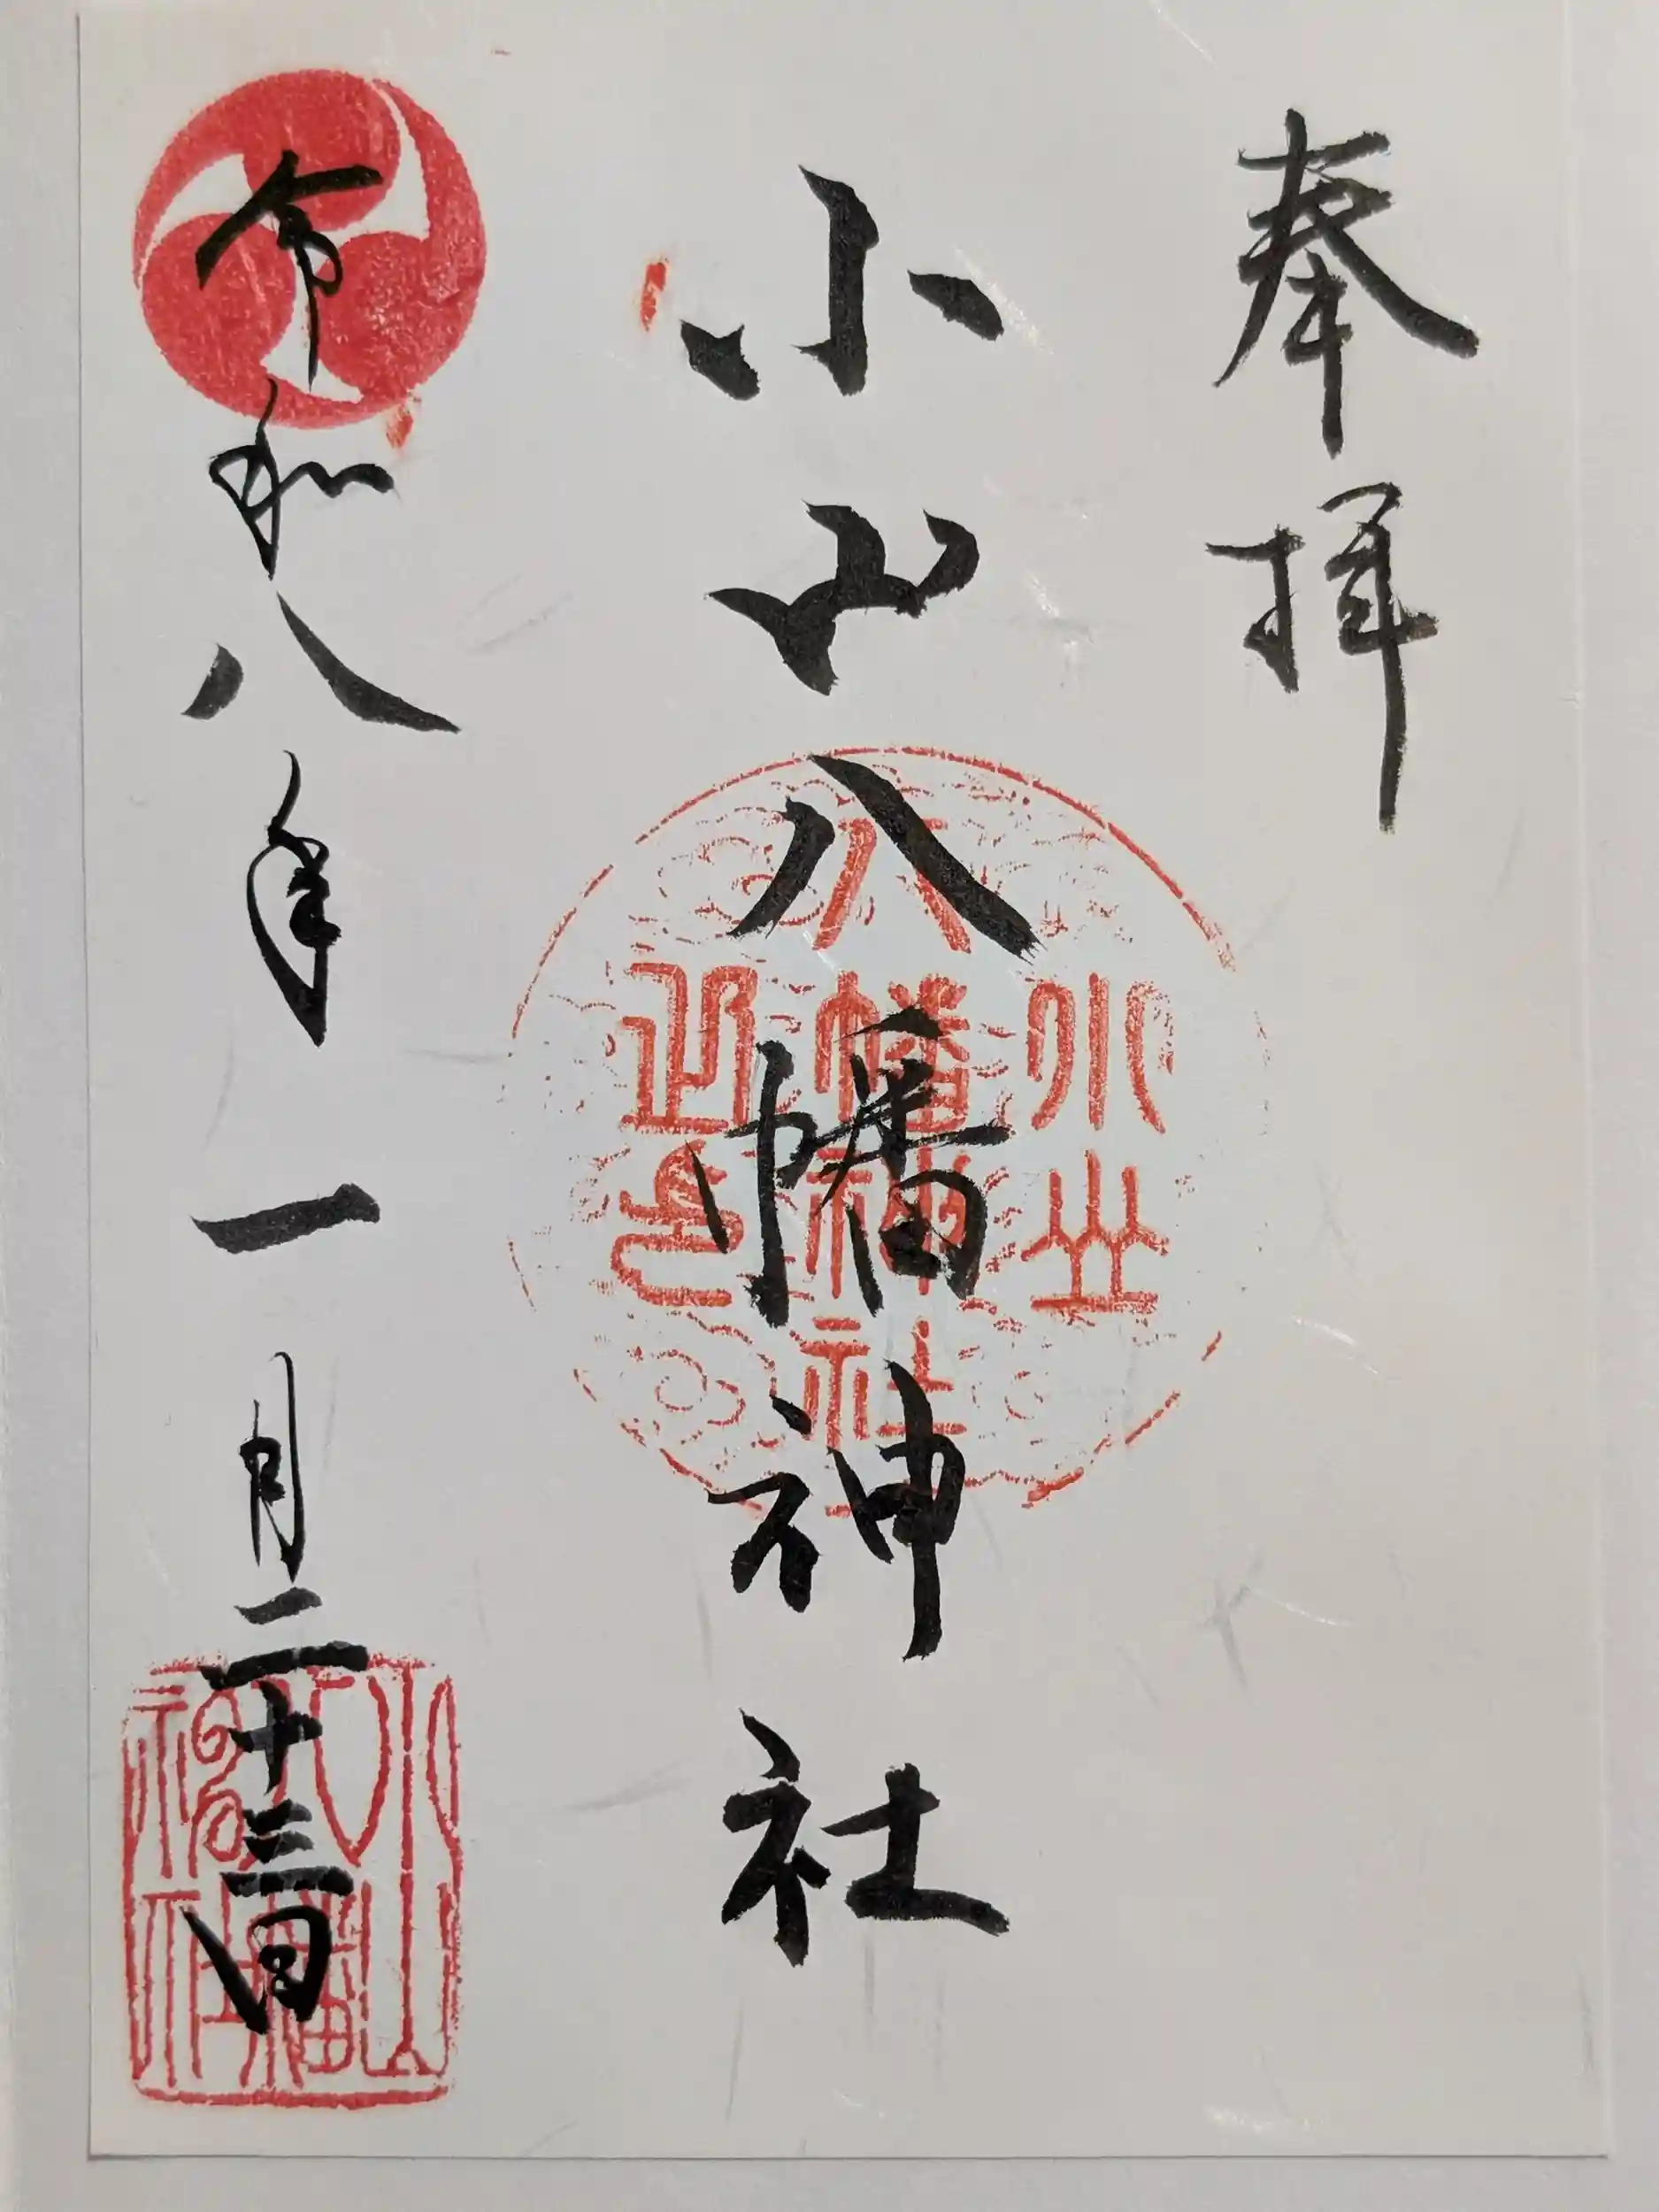 奉拝
小山八幡神社
令和八年一月二十三日
小山
八幡神社
之印